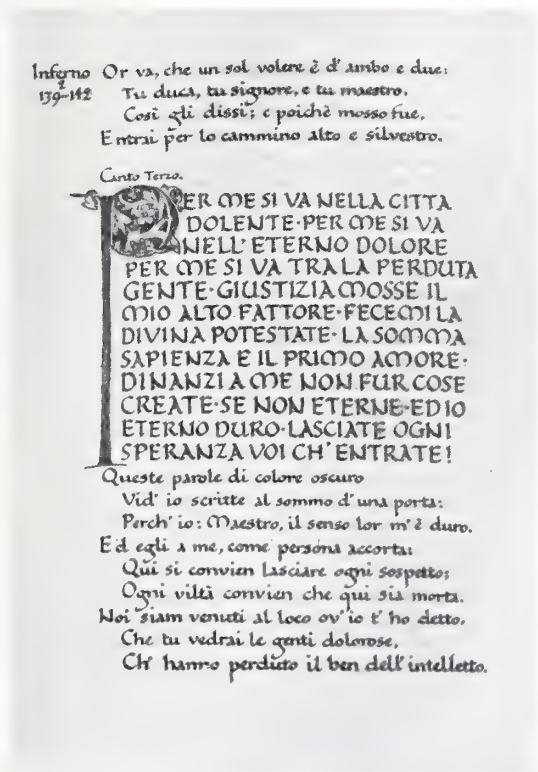 Inferno
2
139-142
Or va, che un sol volere è d' ambo e due:
Tu duca, tu signore, e tu maestro.
Così gli dissi; e poichè mosso fue,
Entrai per lo cammino alto e silvestro.
Canto Terzo.
PER ME SI VA NELLA CITTA
DOLENTE·PER ME SI VA
NELL' ETERNO DOLORE
PER ME SI VA TRA LA PERDUTA
GENTE·GIUSTIZIA MOSSE IL
MIO ALTO FATTORE·FECEMI LA
DIVINA POTESTATE·LA SOMMA
SAPIENZA E IL PRIMO AMORE·
DINANZI A ME NON FUR COSE
CREATE·SE NON ETERNE·ED IO
ETERNO DURO·LASCIATE OGNI
SPERANZA VOI CH' ENTRATE!
Queste parole di colore oscuro
Vid' io scritte al sommo d'una porta:
Perch' io: Maestro, il senso lor m' è duro.
Ed egli a me, come persona accorta:
Qui si convien lasciare ogni sospetto;
Ogni viltà convien che qui sia morta.
Noi siam venuti al loco ov' io t' ho detto,
Che tu vedrai le genti dolorose,
Ch' hanno perduto il ben dell' intelletto.